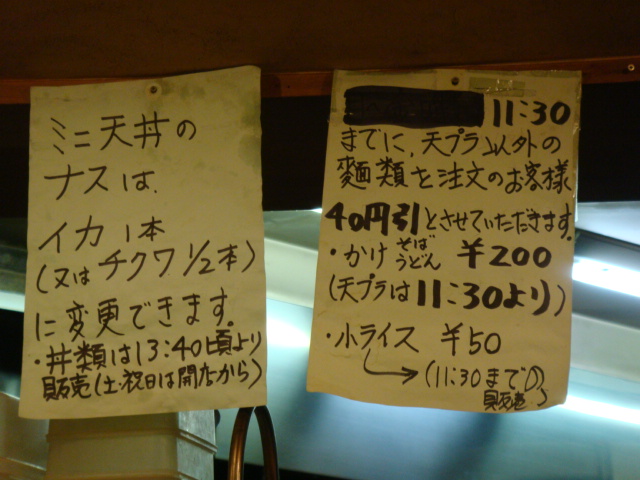 ミニ天丼の
ナスは、
イカ1本
(又はチクワ1/2本)
に変更できます。
・丼類は13:40頃より
販売(土・祝日は開店から)
11:30
までに、天プラ以外の
麺類を注文のお客様
40円引とさせていただきます。
・かけそばうどん ¥200
(天プラは11:30より)
・小ライス ¥50
(11:30までの
販売)